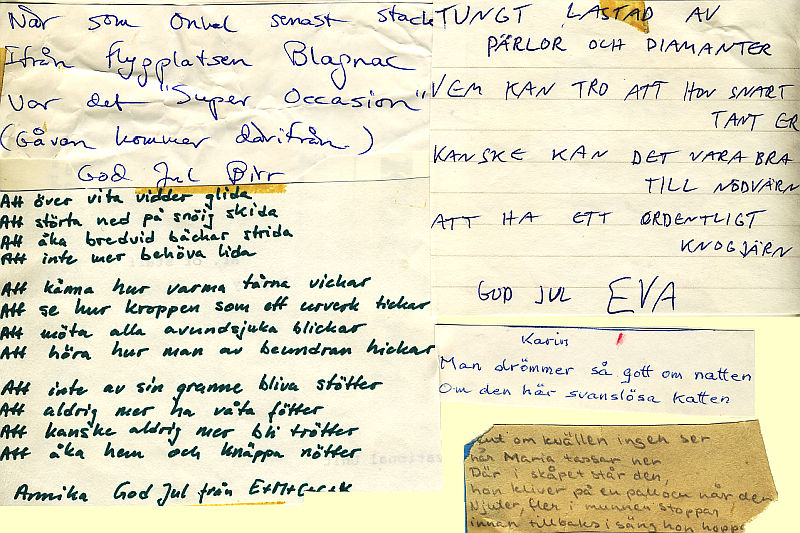 När som Onkel senast stack
Ifrån flygplatsen Blagnac
Var det "Super Occasion"
(Gåvan kommer därifrån.)
God Jul Birr
Att över vita vidder glida
Att störta ned på snöig skida
Att åka bredvid bäckar strida
Att inte mer behöva lida
Att känna hur varma tårna vickar
Att se hur kroppen som ett urverk tickar
Att möta alla avundsjuka blickar
Att höra hur man av beundran hickar
Att inte av sin granne bliva stötter
Att aldrig mer ha våta fötter
Att kanske aldrig mer bli trötter
Att åka hem och knäppa nötter
Annika God Jul från
TUNGT LASTAD AV
PÄRLOR OCH DIAMANTER
VEM KAN TRO ATT HON SNART
TANT ER
KANSKE KAN DET VARA BRA
TILL NÖDVÄRN
ATT HA ETT ORDENTLIGT
KNOGJÄRN
GOD JUL EVA
Karin
Man drömmer så gott om natten
Om den här svanslösa katten
om kvällen ingen ser
när Maria tassar ner
Där i skåpet står den,
hon kliver på en pall och når den
Njuter, fler i munnen stoppar
innan tillbaks i säng hon hoppa